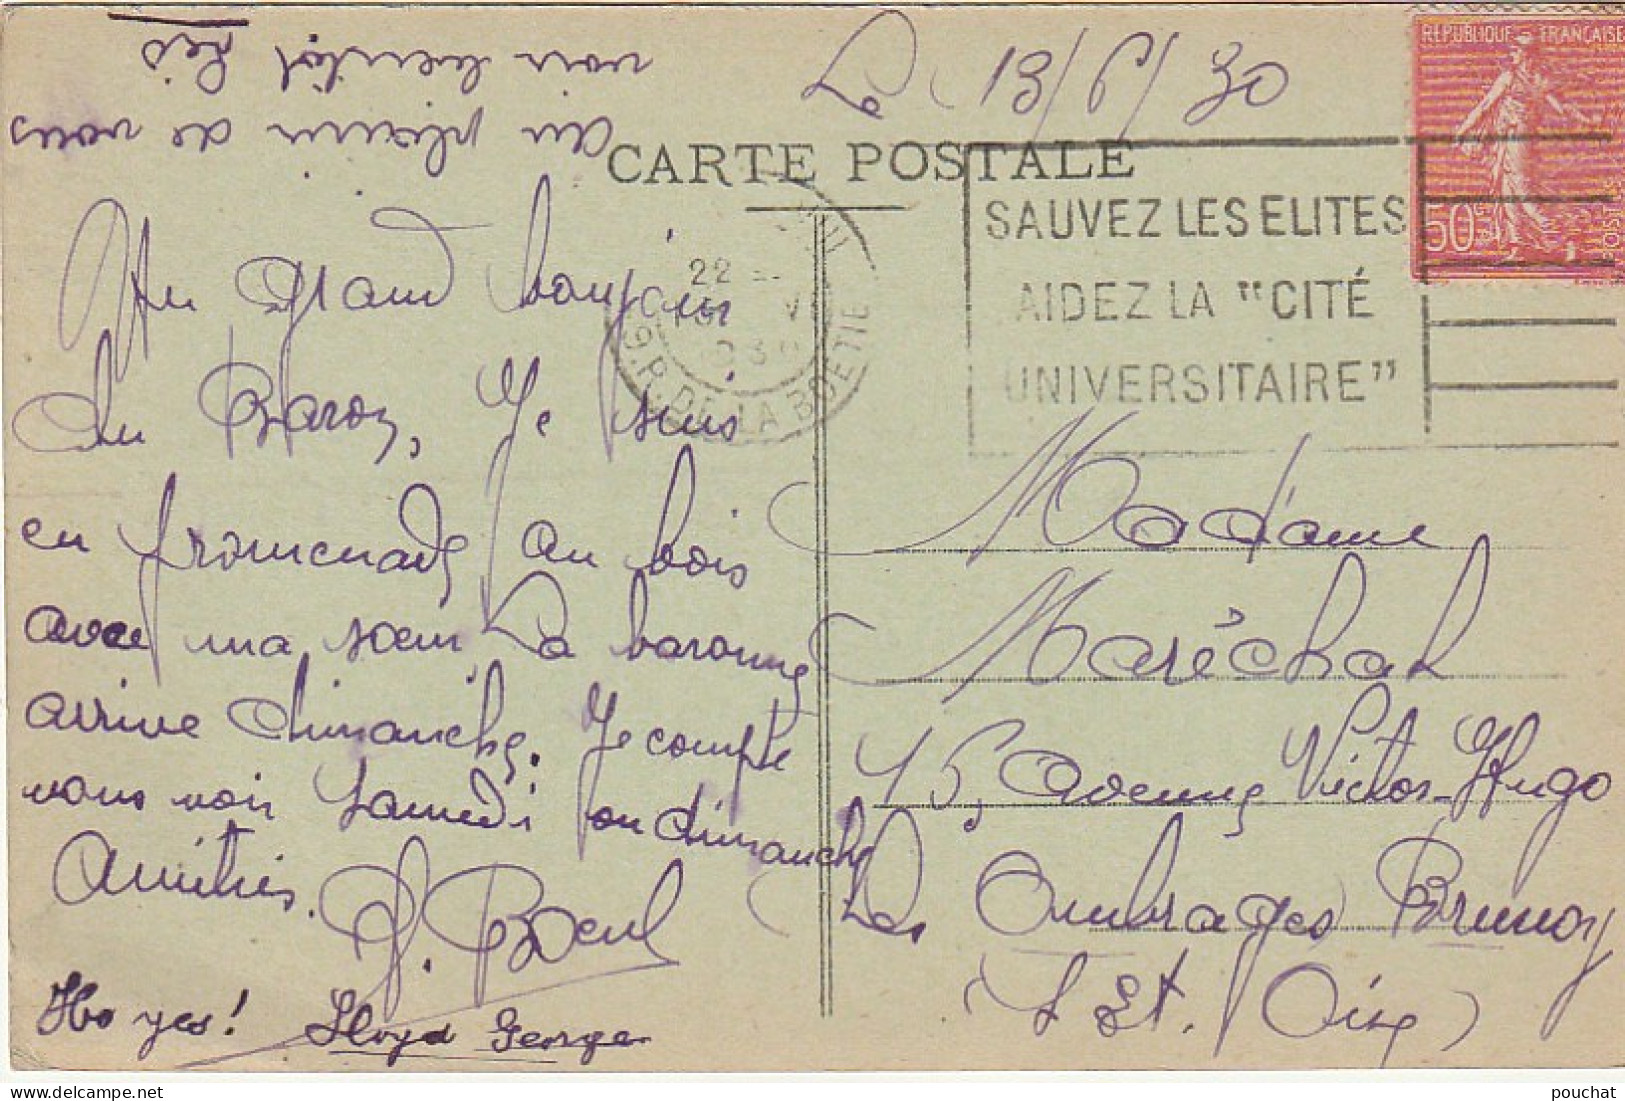 Le 13/6/30
CARTE POSTALE
REPUBLIQUE FRANÇAISE
50
POSTES
SAUVEZ LES ELITES
AIDEZ LA "CITÉ
UNIVERSITAIRE"
22
R. DE LA BOETIE
Un grand bonjour
du Baron, Je suis
en promenade au bois
avec ma sœur, La baronne
arrive dimanche. Je compte
vous voir samedi ou dimanche
Amitiés.
Ho yes! Lloyd George
au plaisir de vous
voir bientôt
Madame
Maréchal
45, avenue Victor-Hugo
Les Ombrages Brunoy
(S Et. Oise)
pouchat